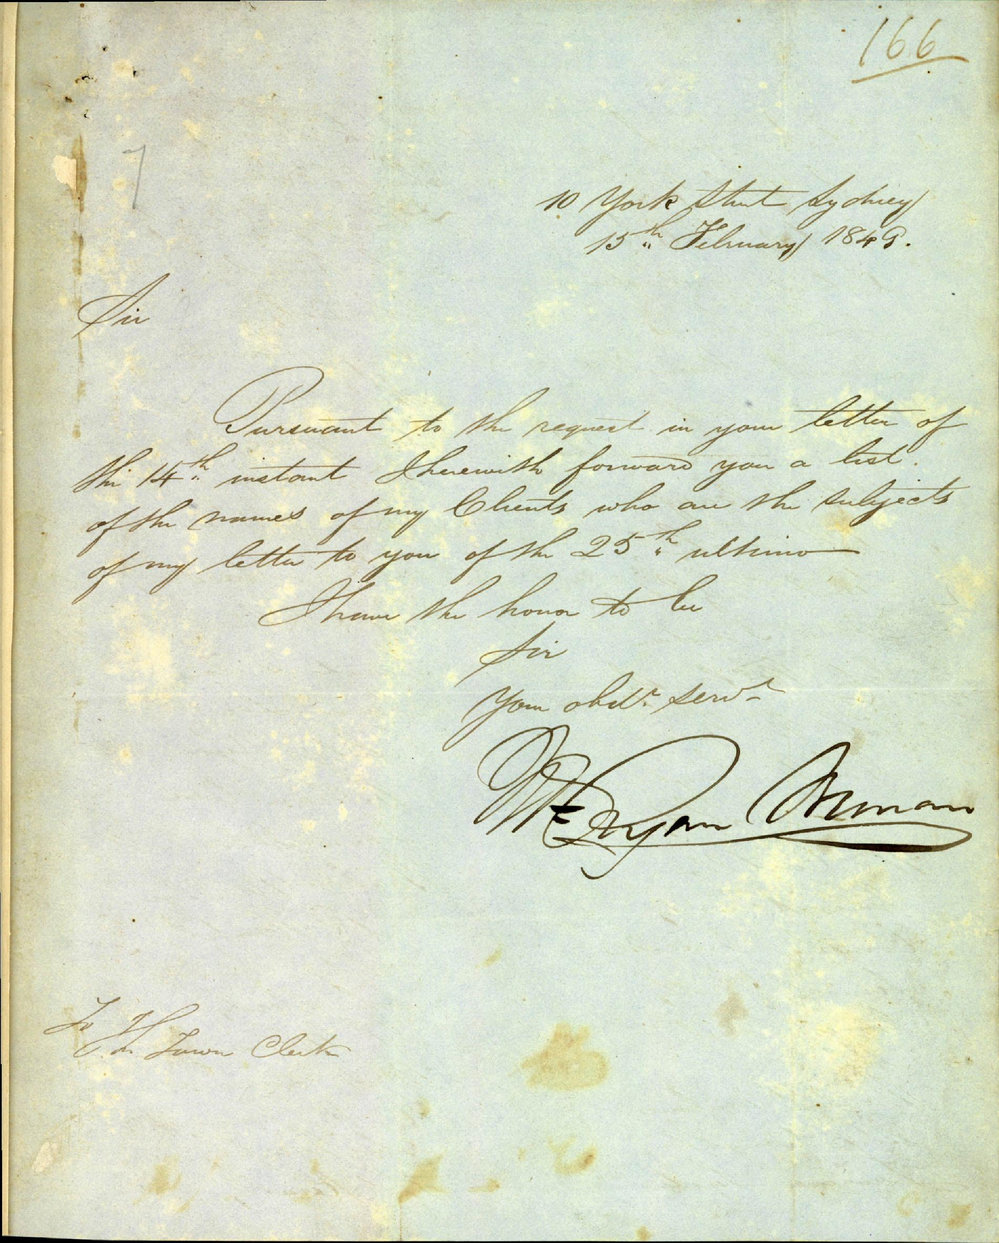 166
7
10 York Street Sydney
15th February 1849.
Sir
Pursuant to the request in your letter of
the 14th instant I herewith forward you a list
of the names of my Clients who are the subjects
of my letter to you of the 25th ultimo
I have the honor to be
Sir
Your obdt. servt
Ryan Brenan
To The Town Clerk